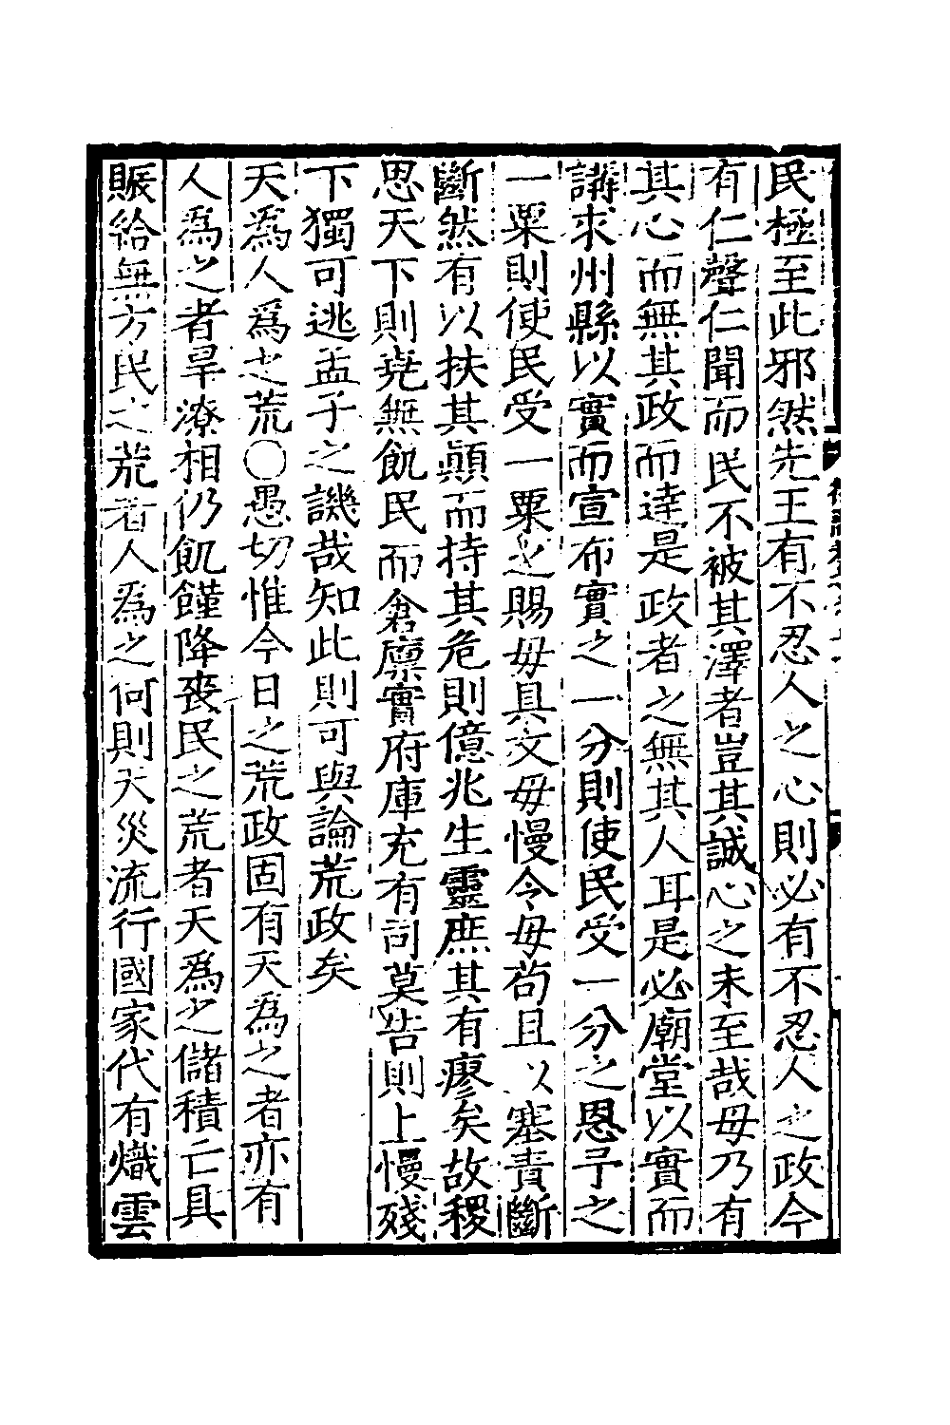 民極至此邪然先王有不忍人之心則必有不忍人之政今
有仁聲仁聞而民不被其澤者豈其誠心之未至哉毋乃有
其心而無其政而達是政者之無其人耳是必廟堂以實而
講求州縣以實而宣布實之一分則使民受一分之恩予之
一粟則使民受一粟之賜毋具文毋慢令毋茍且以塞責斷
斷然有以扶其顛而持其危則億兆生靈庶其有瘳矣故稷
思天下則堯無飢民而倉廩實府庫充有司莫告則上慢殘
下獨可逃孟子之譏哉知此則可與論荒政矣
天為人爲之荒〇愚切惟今日之荒政固有天為之者亦有
人爲之者旱潦相仍飢饉降喪民之荒者天爲之儲積亡具
賑給無方民之荒者人爲之何則天災流行國家代有熾雲